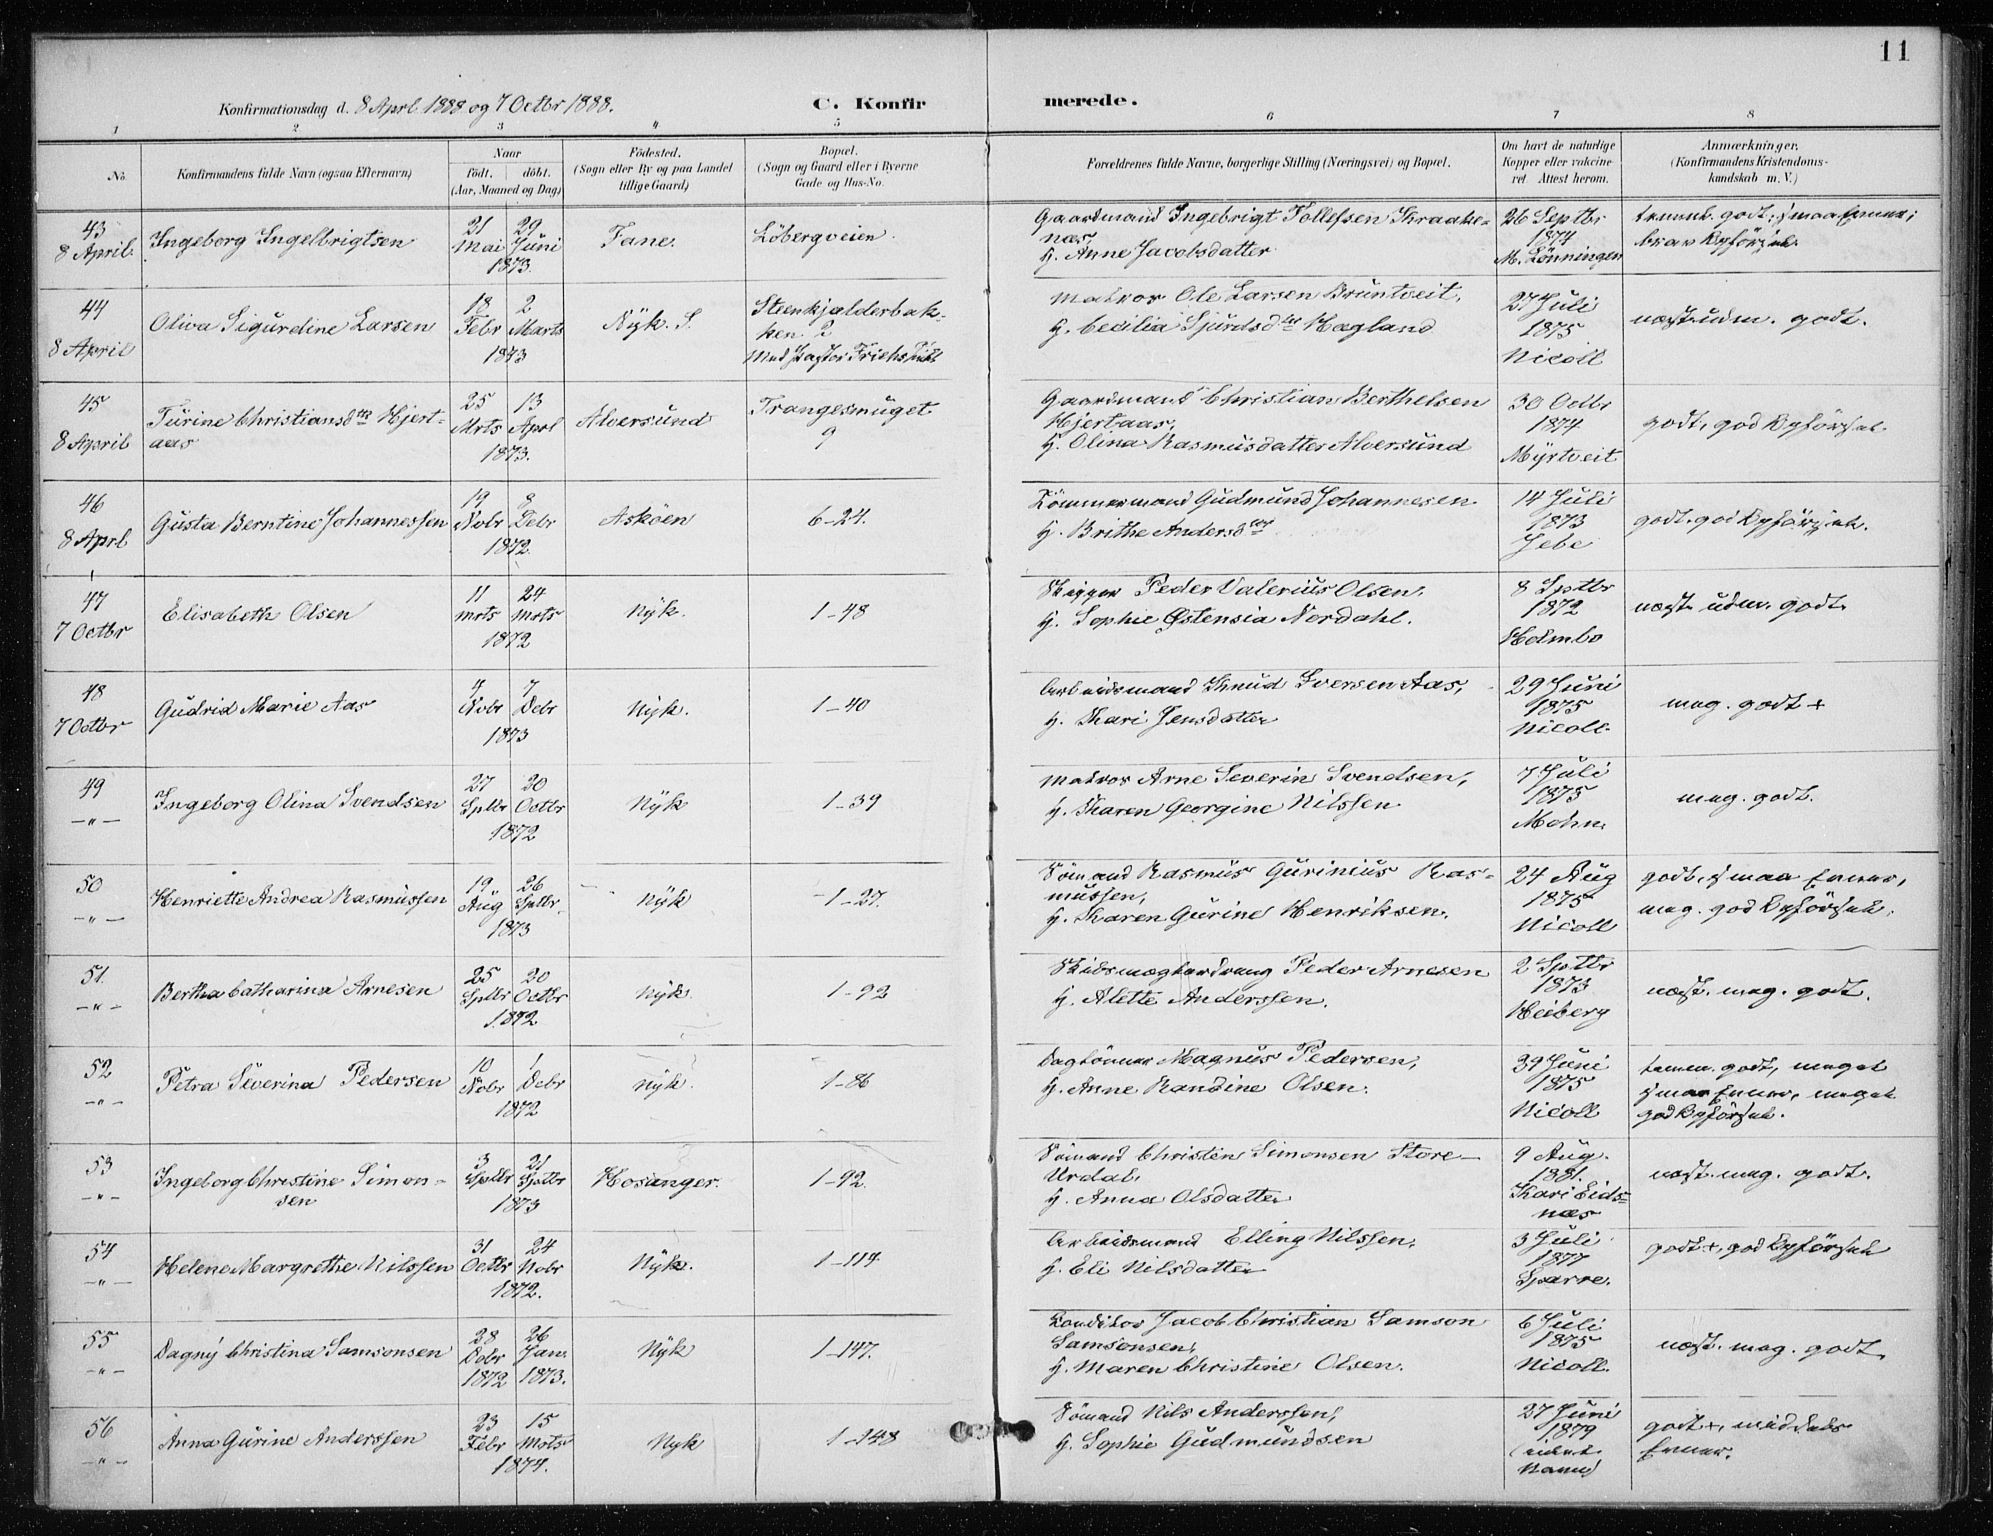 11
Konfirmationsdag d. 8 Aprl 1888 og 7 Octbr 1888.
C. Konfirmerede.
1 2 3 4 5 6 7 8
No.
Konfirmandens fulde Navn (ogsaa Efternavn)
Naar
Födt. döbt.
(Aar, Maaned og Dag)
Födested.
(Sogn eller By og paa Landet
tillige Gaard)
Bopæl.
(Sogn og Gaard eller i Byerne
Gade og Hus-No.
Forældrenes fulde Navne, borgerlige Stilling (Næringsvei) og Bopæl.
Om havt de naturlige
Kopper eller vaccine-
ret. Attest herom.
Anmærkninger.
(Konfirmandens Kristendoms-
kundskab m. V.)
43
8 April.
Ingeborg Ingelbrigtsen
21 29
Mai Juni
1873.
Fane.
Löbergveien
Gaardmand Ingebrigt Tollefsen Kraake-
næs,
H. Anne Jacobsdatter
26 Septbr
1874
M. Lönningen
temml. godt, smaa Evner;
brav Opförsel.
44
8 April
Oliva Sigurdine Larsen
18 2
Febr Marts
1873
Nyk. S.
Steenkjælderbak-
ken 2
Matros Ole Larsen Bruntveit,
H. Cecilia Sjurdsdtr Hagland
27 Juli
1875
Nicoll
næst udm. godt.
45
8 April
Turine Christiansdtr Hjert-
aas
25 13
Mrts Aprl
1873.
Alversund
Trangesmuget
9
Gaardmand Christian Berthelsen
Hjertaas,
H. Olina Rasmusdatter Alversund
30 Octbr
1874
Myrtveit
godt, god Opförsel.
46
8 Aprl
Gusta Berntine Johannessen
19 8
Novbr Debr
1872.
Askøen
6-24.
Tömmermand Gudmund Johannesen
H. Brithe Andersdtr
14 Juli
1873
Jebe
godt, god Opförsel.
47
7 Octbr
Elisabeth Olsen
11 24
Mrts Mrts
1872
Nyk.
1-48
Skipper Peder Valerius Olsen,
H. Sophie Østensia Nordahl.
8 Sptbr
1872
Holmbo
næst. udm. godt.
48
7 Octbr
Gudrid Marie Aas
4 7
Novbr Debr
1873
Nyk.
1-40
Arbeidsmand Knud Iversen Aas,
H. Kari Jensdatter
29 Juni
1875
Nicoll.
meg. godt +
49
-"-
Ingeborg Olina Svendsen
27 20
Sptbr Octbr
1872
Nyk
1-39
Matros Arne Severin Svendsen,
H. Karen Georgine Nilssen
7 Juli
1875
Mohn.
meg. godt.
50
-"-
Henriette Andrea Rasmussen
19 26
Aug Sptbr.
1873
Nyk
1-27.
Sömand Rasmus Gurinius Ras-
mussen,
H. Karen Gurine Henriksen.
24 Aug
1875
Nicoll
godt, smaa Evner,
meg. god Opförsel.
51.
-"-
Bertha Catharina Arnesen
25 20
Sptbr Octbr
1872
Nyk.
1-92
Skibsmægterdreng Peder Arnesen
H. Alette Anderssen.
2 Sptbr
1873
Heiberg
næst. meg. godt.
52
-"-
Petra Severina Pedersen
10 1
Novbr Debr
1872
Nyk.
1-86
Daglönner Magnus Pedersen,
H. Anne Randine Olsen.
Juni
1875
Nicoll
temm. godt, meget
smaa Evner, meget
god Opförsel.
53
-"-
Ingeborg Christine Simon-
sen
3 21
Sptbr Sptbr
1873
Hosanger.
1-92.
Sömand Christen Simonsen Store-
Urdal,
H. Anna Olsdatter
9 Aug.
1881.
Kari Eids-
næs
næst. meg. godt.
54
-"-
Helene Margrethe Nilssen
31 24
Octbr Nobr
1872.
Nyk.
1-114.
Arbeidsmand Elling Nilssen,
H. Eli Nilsdatter
3 Juli
1877
Sparre.
godt +, god Opförsel
55
-"-
Dagny Christina Samsonsen
28 26
Debr Jan.
1872 1873.
Nyk
1-147.
Konditor Jacob Christian Samson
Samsonsen,
H. Maren Christine Olsen.
6 Juli
1875
Nicoll.
næst. meg. godt.
56
-"-
Anna Gurine Anderssen
23 15
Febr Mrts
1874.
Nyk
1-148
Sömand Nils Anderssen,
H. Sophie Gudmundsen
27 Juni
1879
(uden
Navn)
godt +, middels
Evner.